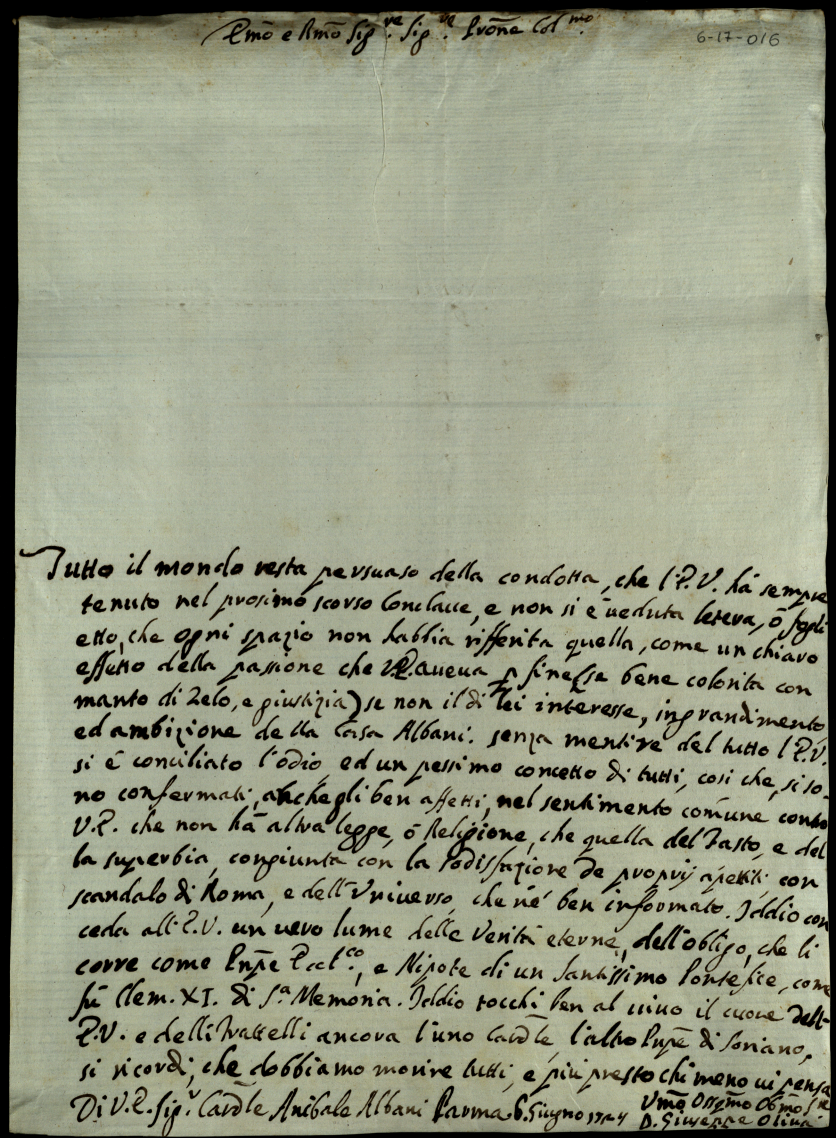 Emõ e Rmõ Sig.re Sig.re Prõne Col.mo
6-17-016
Tutto il mondo resta persuaso della condotta, che l'E.V. hà sempre
tenuto nel prosimo scorso Conclaue, e non si è ueduta letera, ò fogli
etto, che ogni spazio non habbia rifferita quella, come un chiaro
effetto della passione che V.E. aueua p fine (se bene colorita con
manto di Zelo, e giustizia) se non il di lei interesse, ingrandimento
ed ambizione della Casa Albani. senza mentire del tutto l'E.V.
si è conciliato l'odio, ed un pessimo concetto di tutti, così che, si so-
no confermati, anche gli ben affetti, nel sentimento comune contro
V.E. che non hà altra legge, ò Religione, che quella del Fasto, e del
la superbia, congiunta con la sodisfazione de proprij apetiti, con
scandalo di Roma, e dell'Vniverso, che nè ben informato. Iddio con
ceda all'E.V. un uero lume delle Verità eterne, dell'obligo, che li
corre come Pnpẽ Eccl.co, e Nipote di un Santissimo Pontefice, come
fù Clem. XI. di S.a Memoria. Iddio tocchi ben al uiuo il cuore dell'
E.V. e delli Frattelli ancora l'uno Cardle, l'altro Pnpẽ di Soriano,
si ricordi, che dobbiamo morire tutti, e più presto chi meno ui pensa
Di V.E. Sig.r Cardle Anibale Albani Parma 6 Giugno 1724 Vmõ Ossmõ Obmõ S.re
D. Giuseppe Oliua